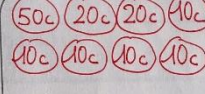 50c 20c 20c 10c
10c 10c 10c 10c